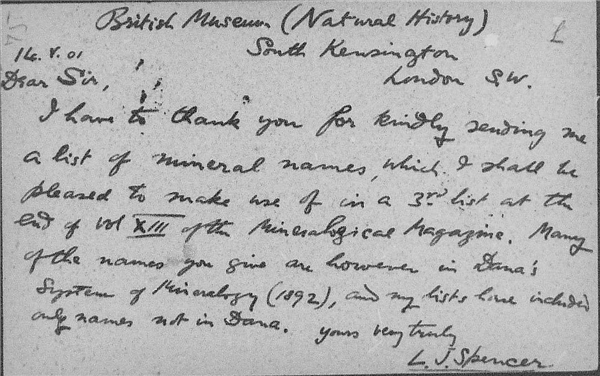 British Museum (Natural History)
South Kensington
16.V.01 London S.W.
Dear Sir,
I have to thank you for kindly sending me
a list of mineral names, which I shall be
pleased to make use of in a 3rd list at the
end of vol XIII of the Mineralogical Magazine. Many
of the names you give are however in Dana's
System of Mineralogy (1892), and my lists have included
only names not in Dana. Yours very truly
L. J. Spencer